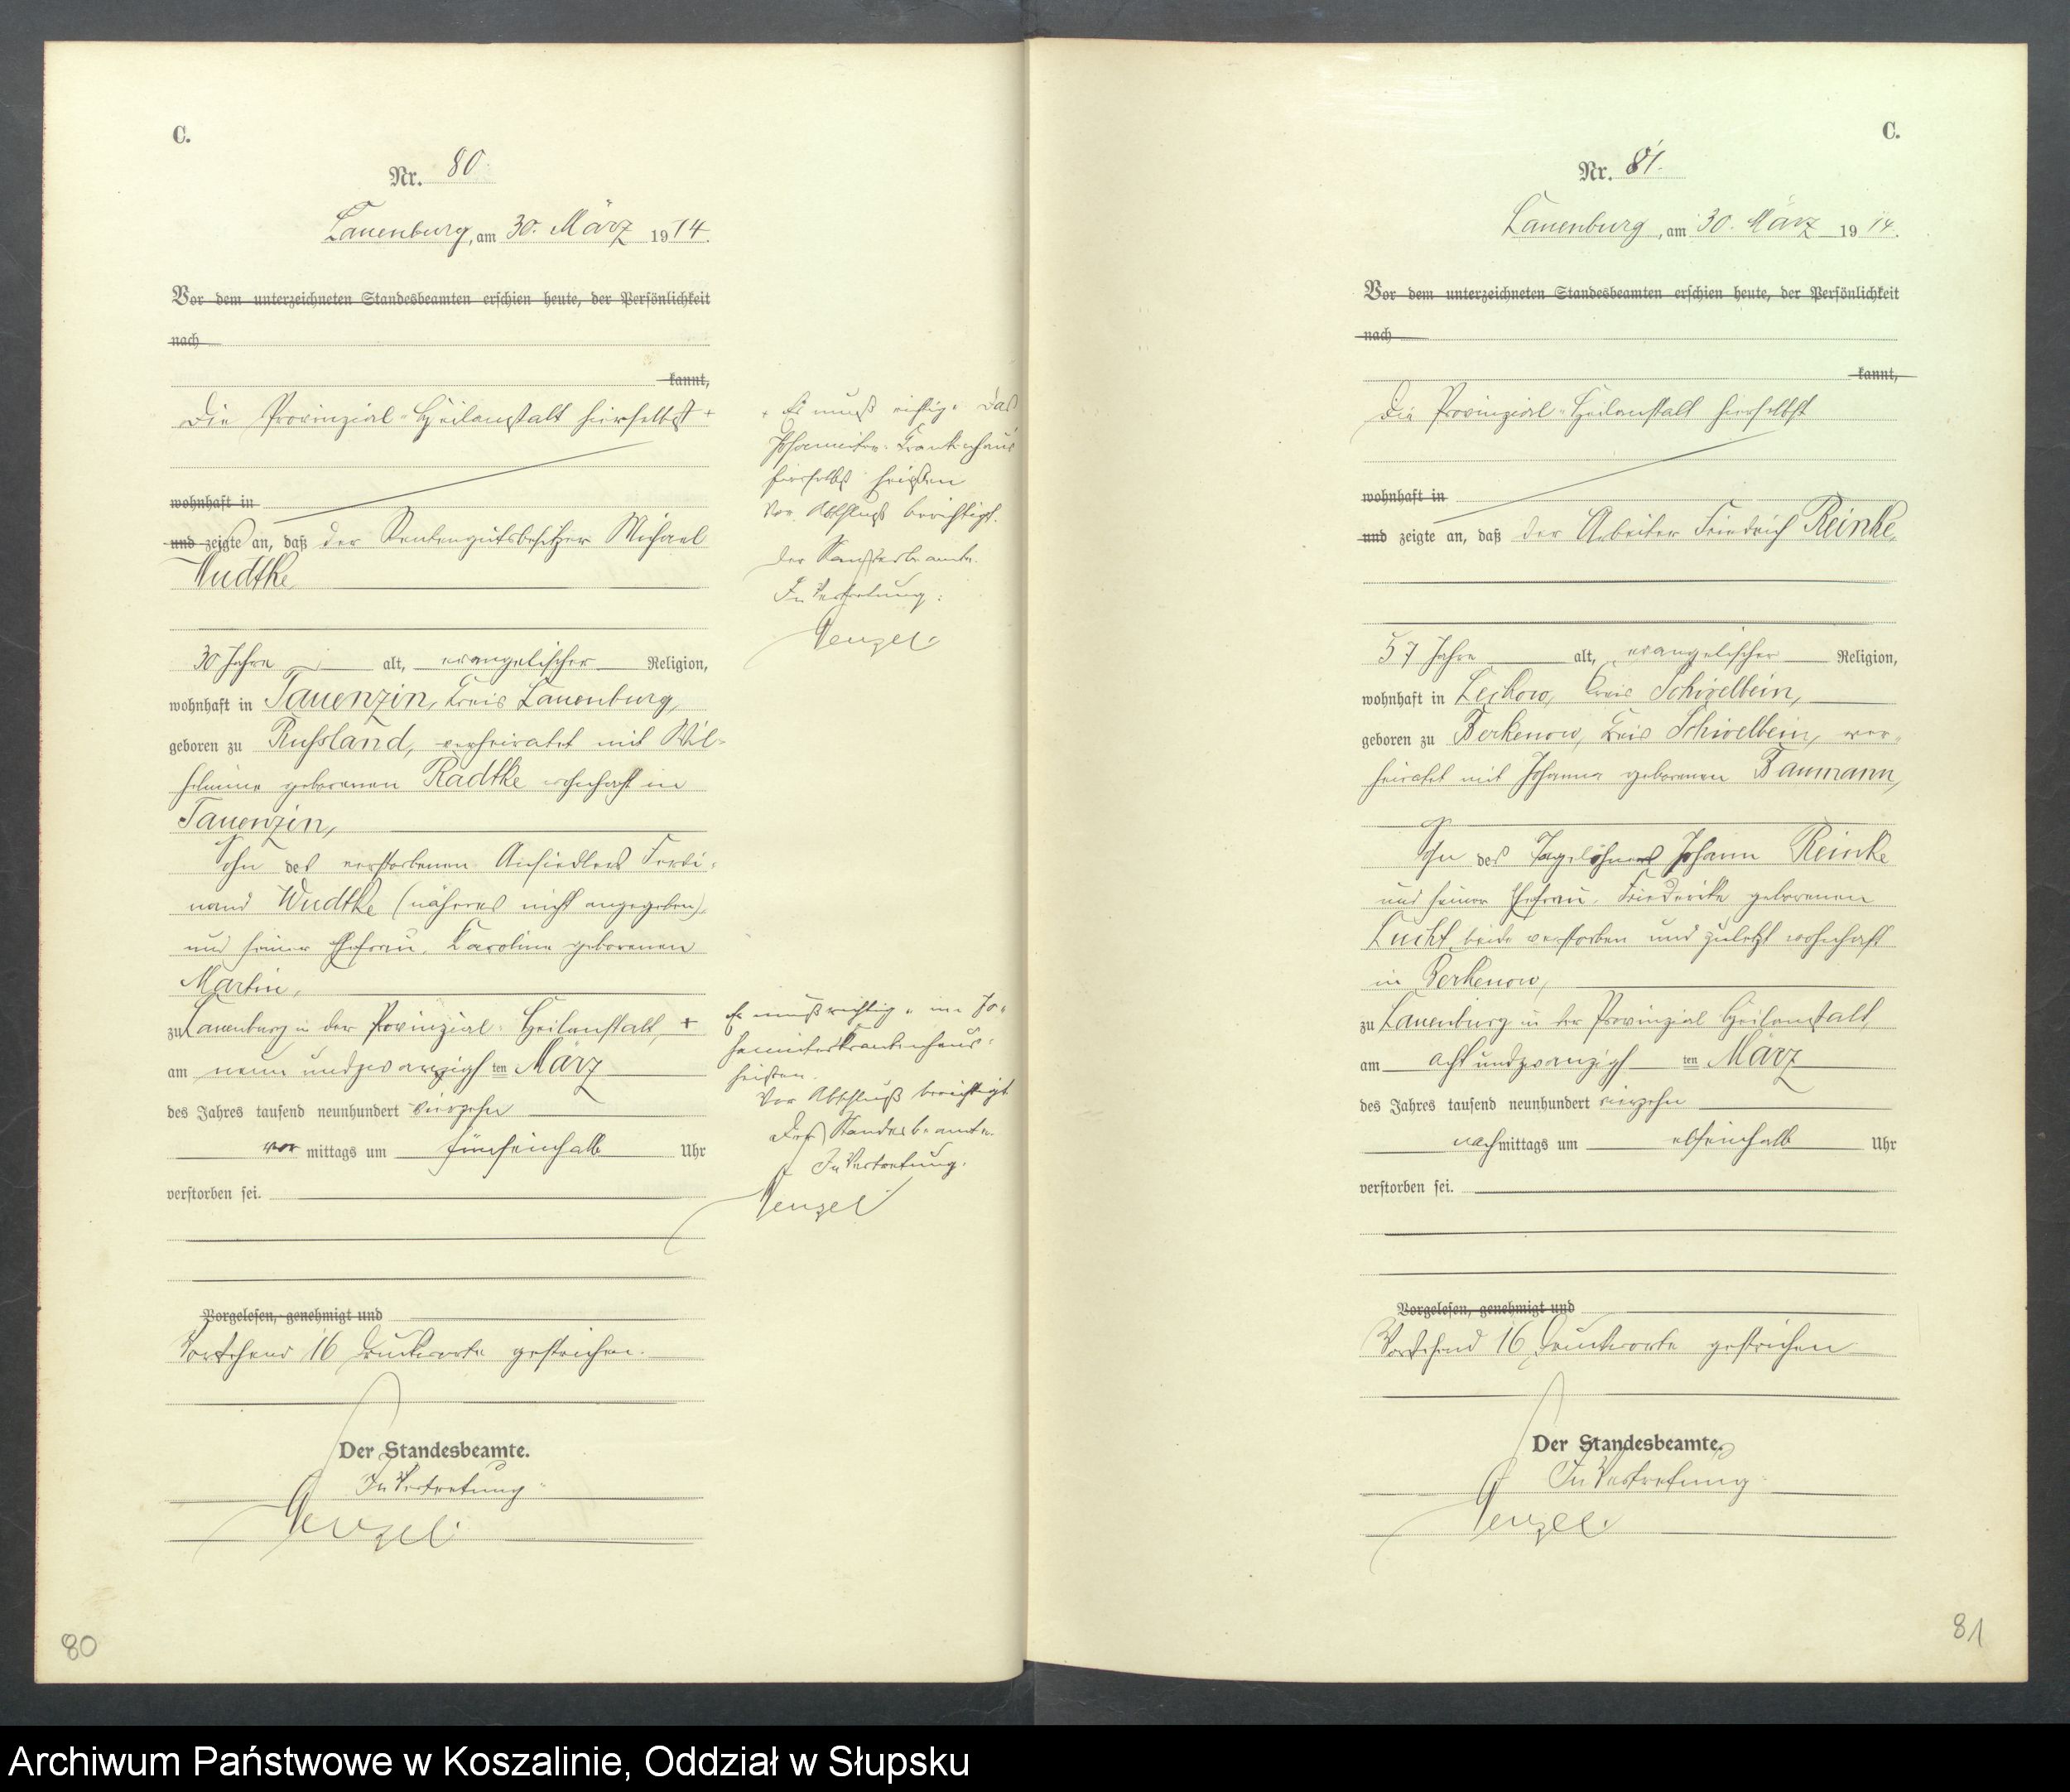 C.
Nr. 80
Lauenburg, am 30. März 1914.
Vor dem unterzeichneten Standesbeamten erschien heute, der Persönlichkeit
nach
kannt,
Die Provinzial-Heilanstalt hierselbst +
wohnhaft in
und zeigte an, daß der Rentengutsbesitzer Michael
Wudtke
30 Jahre alt, evangelischer Religion,
wohnhaft in Tauenzin, Kreis Lauenburg,
geboren zu Russland, verheiratet mit Wil-
helmine geborenen Radtke wohnhaft in
Tauenzin,
Sohn des verstorbenen Ansiedlers Ferdi-
nand Wudtke (näheres nicht angegeben),
und seiner Ehefrau, Karoline geborenen
Martin,
zu Lauenburg in der Provinzial-Heilanstalt, +
am neun undzwanzigsten März
des Jahres tausend neunhundert vierzehn
vormittags um fünfeinhalb Uhr
verstorben sei.
Vorgelesen, genehmigt und
Vorstehend 16 Druckworte gestrichen.
Der Standesbeamte.
In Vertretung:
80
+ Es muß richtig "Das
Johanniter-Krankenhaus
hierselbst heißen
Vor Abschluß berichtigt.
Der Standesbeamte.
In Vertretung:
Es muß richtig "im Jo-
hanniterkrankenhaus"
heißen.
Vor Abschluß berichtigt
Der Standesbeamte.
In Vertretung.
C.
Nr. 81.
Lauenburg, am 30. März 1914.
Vor dem unterzeichneten Standesbeamten erschien heute, der Persönlichkeit
nach
kannt,
Die Provinzial-Heilanstalt hierselbst
wohnhaft in
und zeigte an, daß der Arbeiter Friedrich Reinke,
57 Jahre alt, evangelischer Religion,
wohnhaft in Leckow, Kreis Schivelbein,
geboren zu Berkenow, Kreis Schivelbein, ver-
heiratet mit Johanna geborenen Baumann,
Sohn des Tagelöhners Johann Reinke
und seiner Ehefrau, Friedericke geborenen
Lucht, beide verstorben und zuletzt wohnhaft
in Berkenow,
zu Lauenburg in der Provinzial Heilanstalt,
am acht undzwanzigsten März
des Jahres tausend neunhundert vierzehn
nachmittags um elfeinhalb Uhr
verstorben sei.
Vorgelesen, genehmigt und
Vorstehend 16 Druckworte gestrichen
Der Standesbeamte.
In Vertretung
81
Archiwum Państwowe w Koszalinie, Oddział w Słupsku